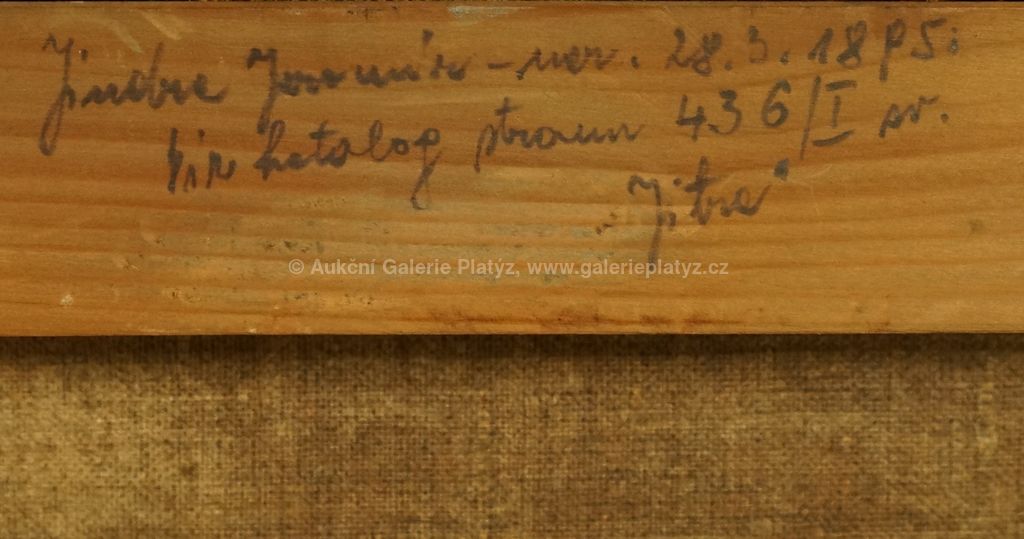 Jindra Jaromír - nar. 28.3.1895:
viz katalog stran 436/I sv.
„Jitra"
© Aukční Galerie Platýz, www.galerieplatyz.cz